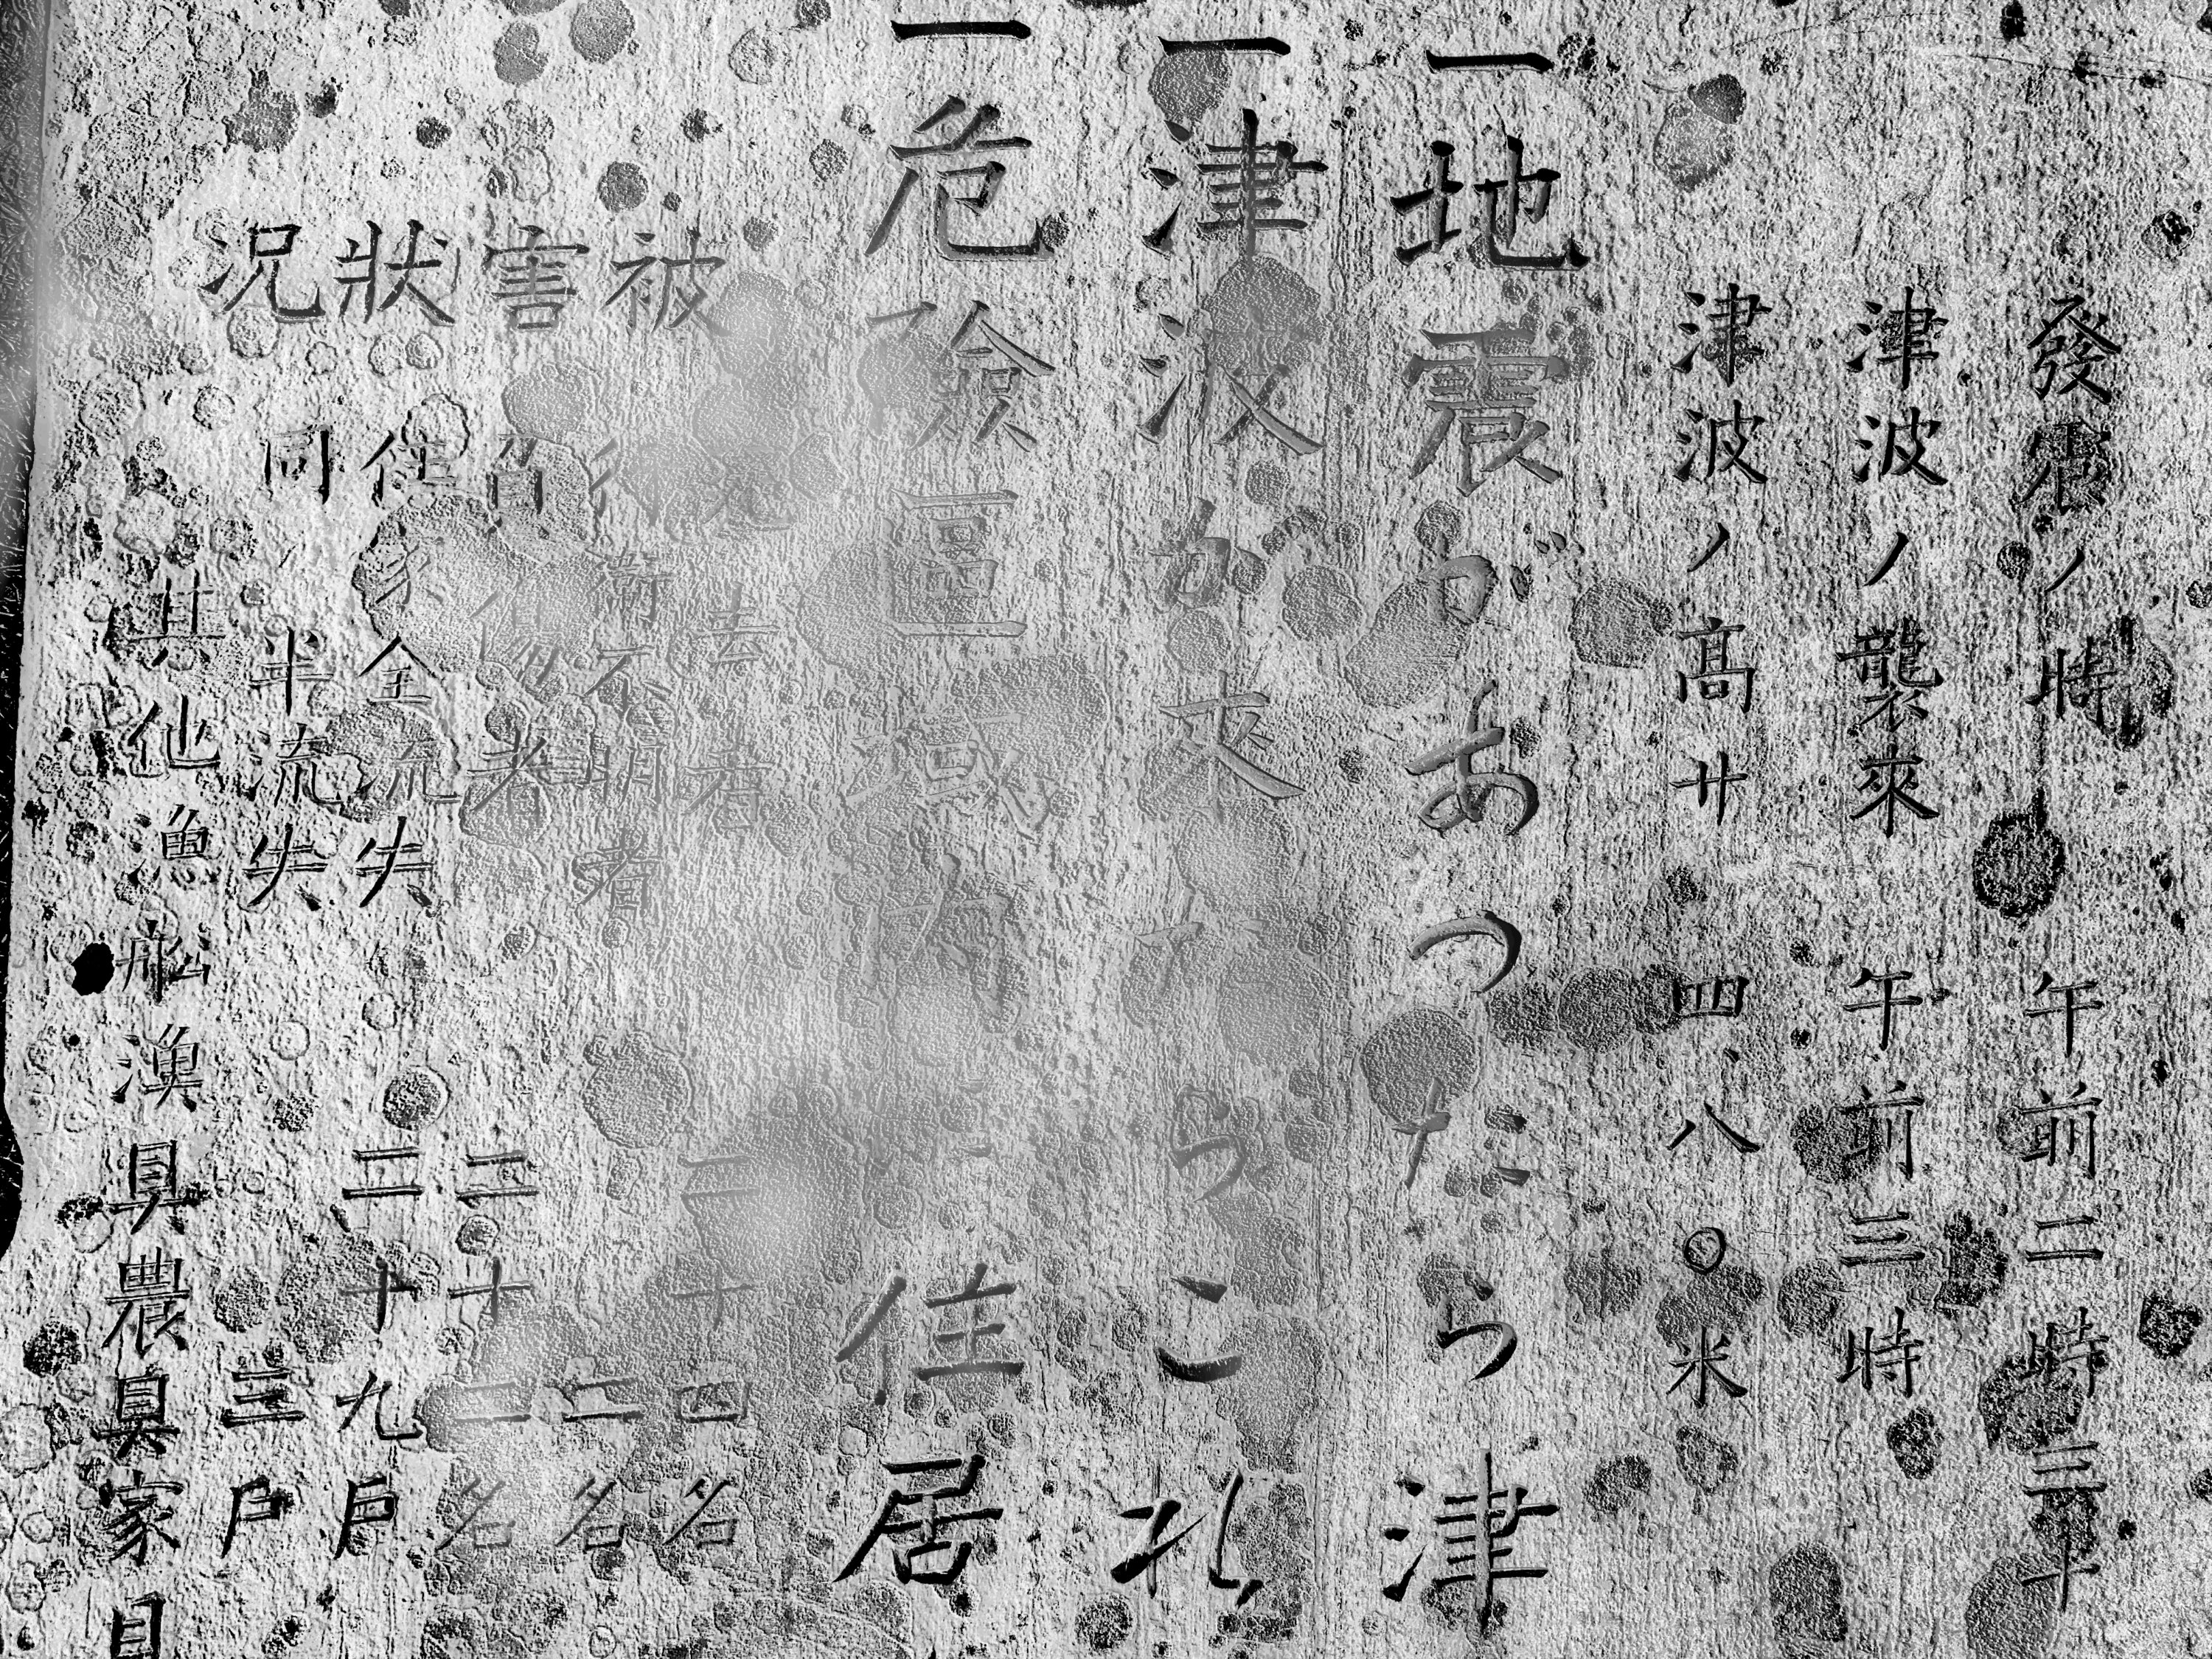 發震ノ時 午前二時三十
津波ノ襲來 午前三時
津波ノ高サ 四、八〇米
一地震があつたら津
一津波が來たらこれ
一危險區域內に住居
被害狀況
死去者 二十四名
行衛不明者 二名
負傷者 二十二名
住家全流失 二十九戶
同 半流失 三戶
其他漁船漁具農具家具